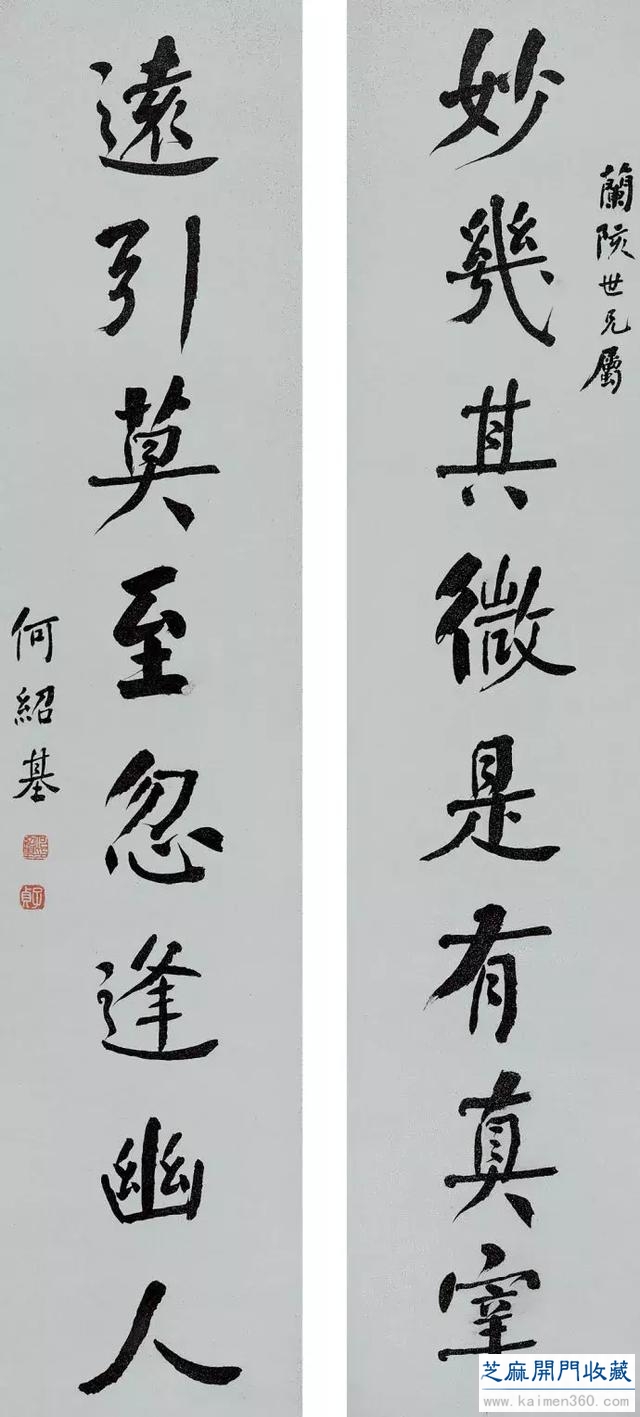 蘭陔世兄屬
妙幾其微是有真宰
遠引莫至忽逢幽人
何紹基
子貞
芝麻開門收藏
www.kaimen360.com